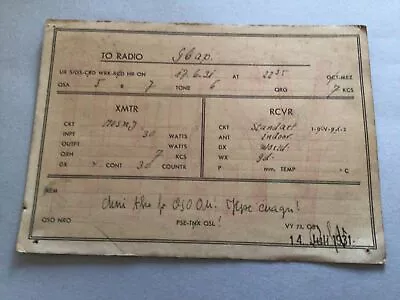 TO RADIO G6ap.
UR SIGS-CRD WRK-RCD HR ON 17.6.31 AT 22 35 GCT-MEZ
QSA 5 R 7 TONE 6 QRG 7 KCS
XMTR
CKT
INPT 30 WATTS
OUTPT WATTS
QRH 7 KCS
DX CONT 30 COUNTR
RCVR
CKT Standart 1-0-V-1-2
ANT indoor
DX World.
WX gd.
P mm, TEMP °C
REM
fr QSO O.M.! Hpe cuagn!
QSO NRO PSE-TNX QSL! VY 73, OB!
14. Juli 1931